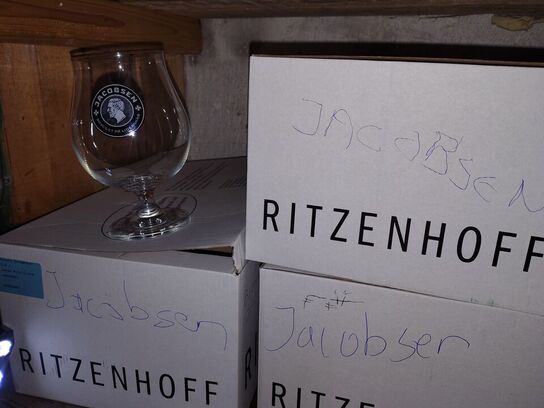 JACOBSEN
JACOBSEN
RITZENHOFF
Jacobsen
RITZENHOFF
Jacobsen
RITZENHOFF